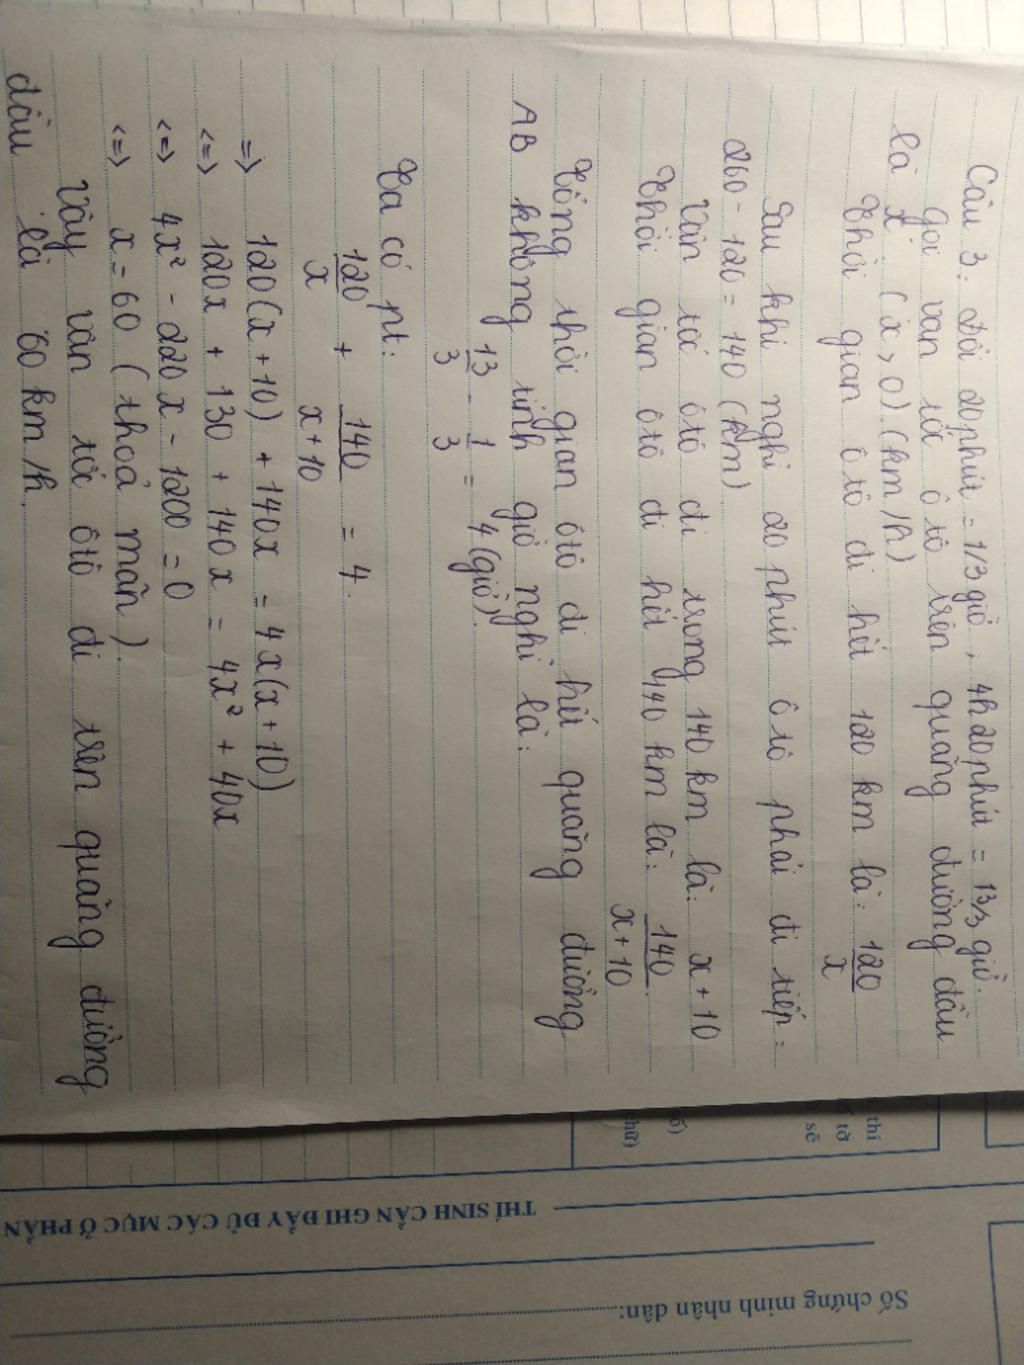 Câu 3: Đổi 20 phút = 1/3 giờ ; 4h20 phút = 13/3 giờ.
Gọi vận tốc ô tô trên quãng đường đầu
là x (x > 0) (km/h)
Thời gian ô tô đi hết 120 km là: 120/x
Sau khi nghỉ 20 phút ô tô phải đi tiếp =
260 - 120 = 140 (km)
Vận tốc ôtô đi trong 140 km là: x + 10
Thời gian ôtô đi hết 140 km là: 140/x+10.
Tổng thời gian ôtô đi hết quãng đường
AB không tính giờ nghỉ là:
13/3 - 1/3 = 4 (giờ).
Ta có pt:
120/x + 140/x+10 = 4.
=> 120(x + 10) + 140x = 4x(x + 10)
<=> 120x + 130 + 140x = 4x² + 40x
<=> 4x² - 220x - 1200 = 0
<=> x = 60 (thoả mãn).
Vậy vận tốc ôtô đi trên quãng đường
đầu là 60 km/h.
thí
tờ
sẽ
ố)
hữ)
THÍ SINH CẦN GHI ĐẦY ĐỦ CÁC MỤC Ở PHẦN
Số chứng minh nhân dân: